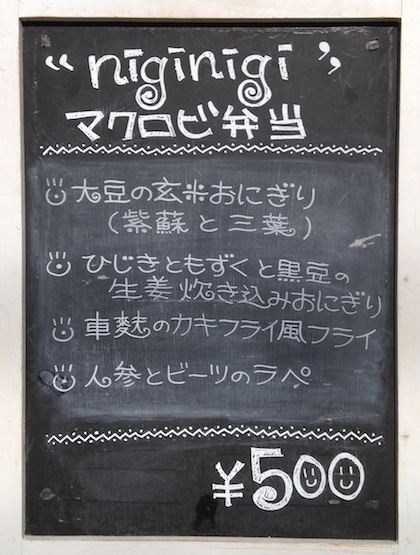 “niginigi”
マクロビ弁当
大豆の玄米おにぎり
(紫蘇と三葉)
ひじきともずくと黒豆の
生姜炊き込みおにぎり
車麩のカキフライ風フライ
人参とビーツのラペ
¥500